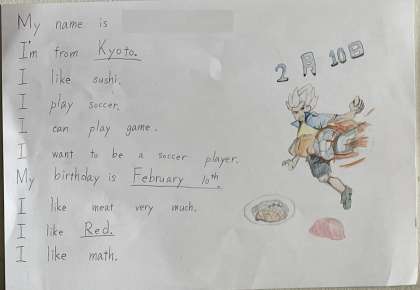 My name is
I'm from Kyoto.
I like sushi.
I play soccer.
I can play game.
I want to be a soccer player.
My birthday is February 10th.
I like meat very much.
I like Red.
I like math.
2月10日